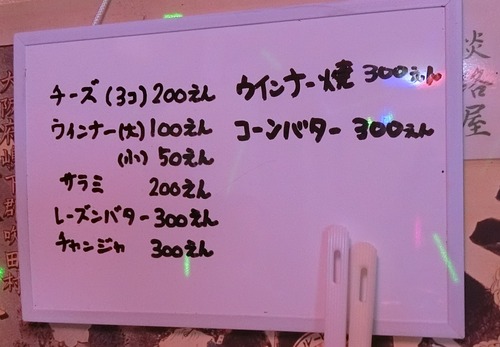 チーズ(3コ)200えん
ウィンナー(大)100えん
(小)50えん
サラミ 200えん
レーズンバター300えん
チャンジャ 300えん
ウインナー焼 300えん
コーンバター 300えん